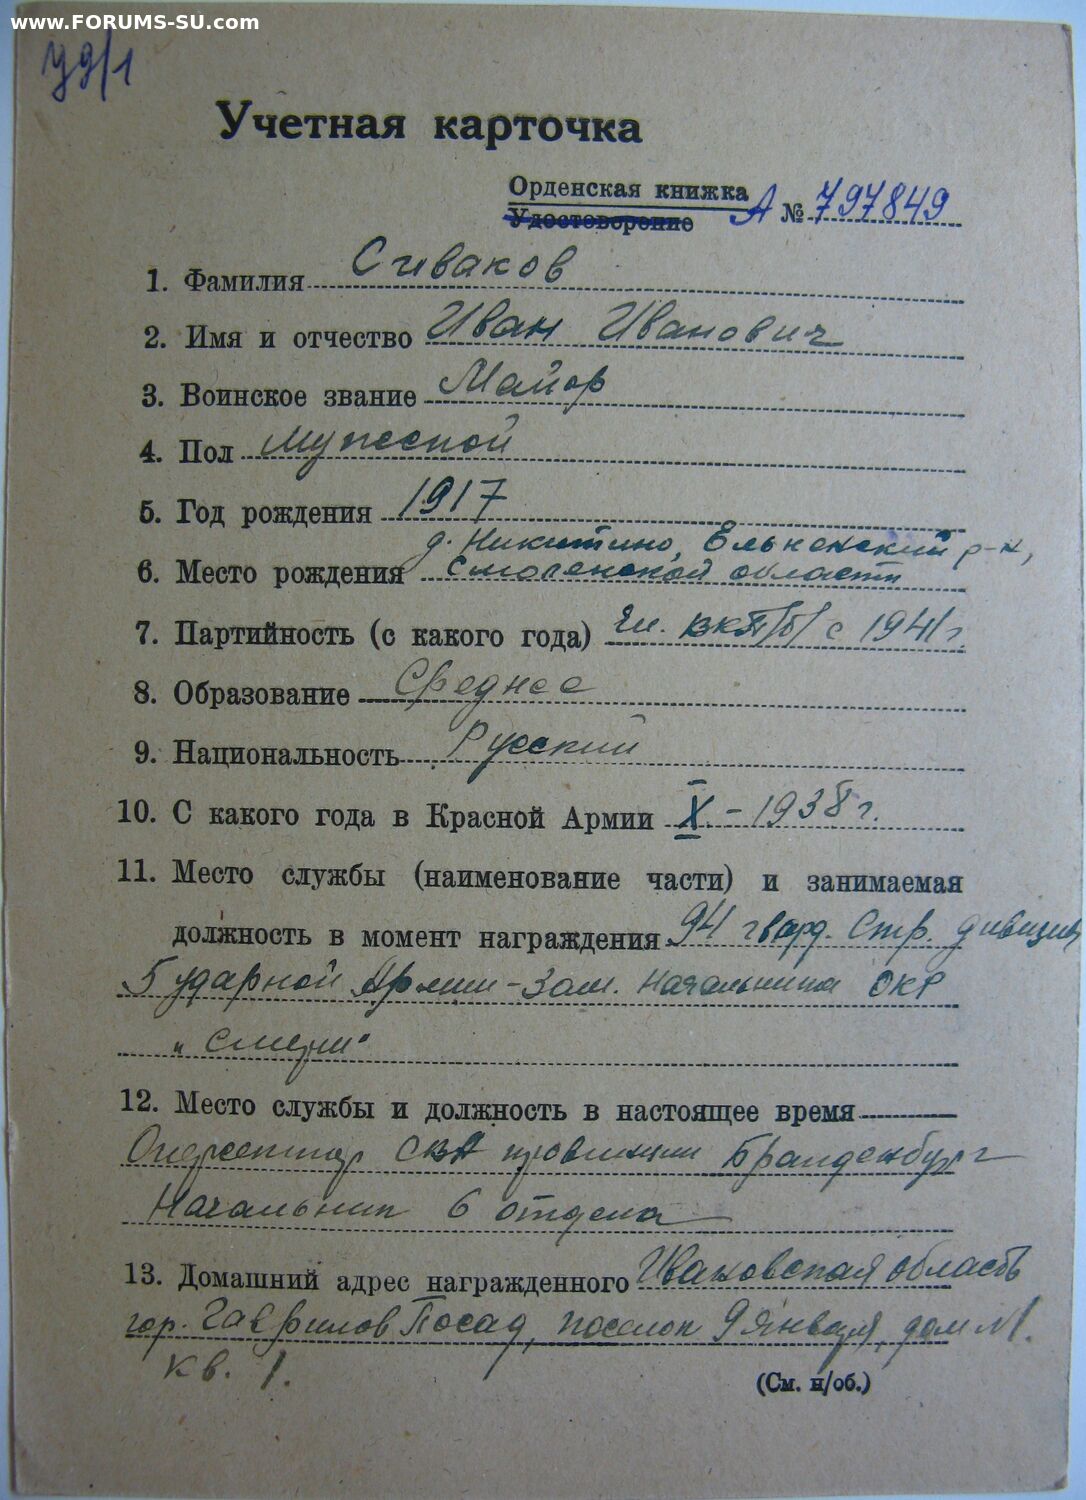 www.FORUMS-SU.com
уд/1
Учетная карточка
Орденская книжка
Удостоверение А № 797849
1. Фамилия Сиваков
2. Имя и отчество Иван Иванович
3. Воинское звание Майор
4. Пол мужской
5. Год рождения 1917
д. Никитино, Ельненский р-н,
6. Место рождения Смоленской области
7. Партийность (с какого года) чл. ВКП/б/ с 1941 г.
8. Образование Среднее
9. Национальность Русский
10. С какого года в Красной Армии X.-1938 г.
11. Место службы (наименование части) и занимаемая
должность в момент награждения 94 гвард. Стр. дивизия
5 ударной Армии - Зам. Начальника ОКР
"Смерш"
12. Место службы и должность в настоящее время
Оперсектор СВА провинции Бранденбург
Начальник 6 отдела
13. Домашний адрес награжденного Ивановская область
гор. Гаврилов Посад, поселок 9 января, дом №1.
кв. 1.
(См. н/об.)